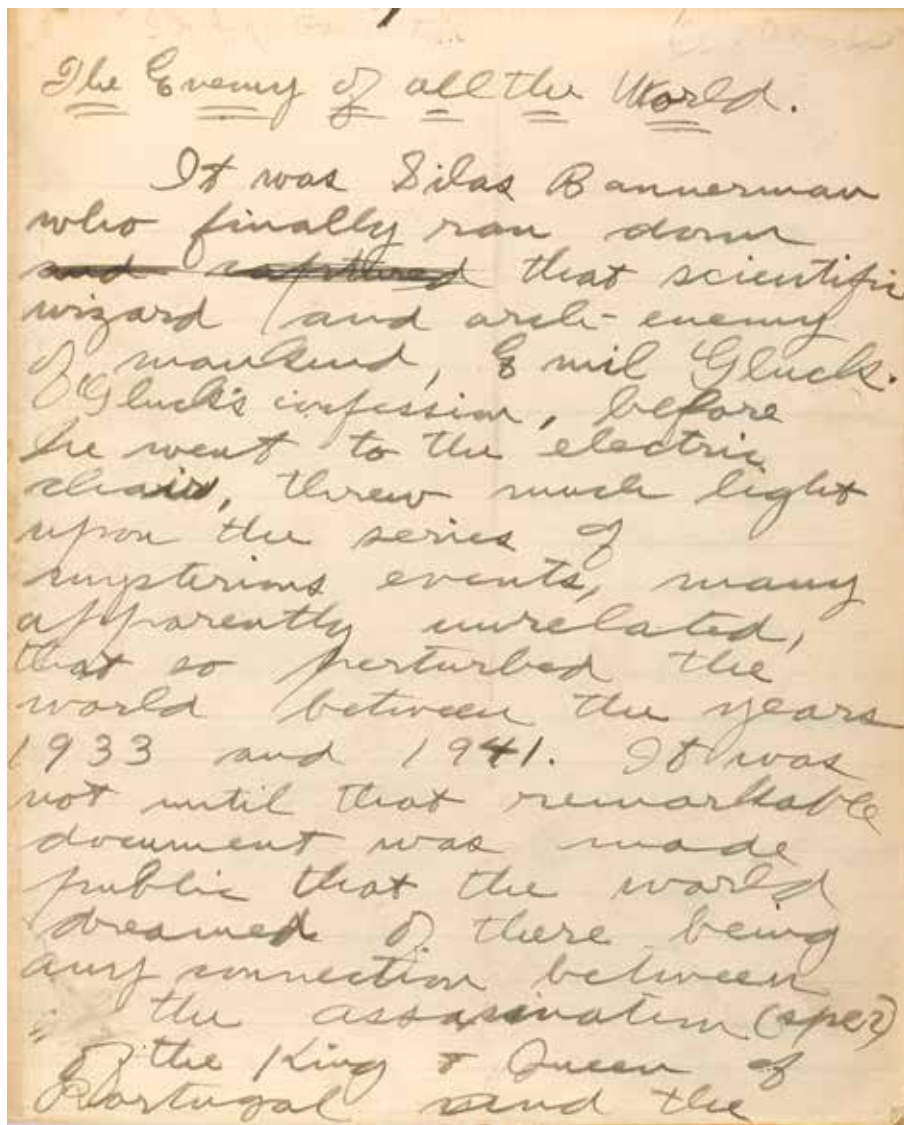 The Enemy of all the World.
It was Silas Bannerman
who finally ran down
and captured that scientific
wizard and arch-enemy
of mankind, Emil Gluck.
Gluck's confession, before
he went to the electric
chair, threw much light
upon the series of
mysterious events, many
apparently unrelated,
that so perturbed the
world between the years
1933 and 1941. It was
not until that remarkable
document was made
public that the world
dreamed of there being
any connection between
the assasination (spez)
of the King & Queen of
Portugal and the